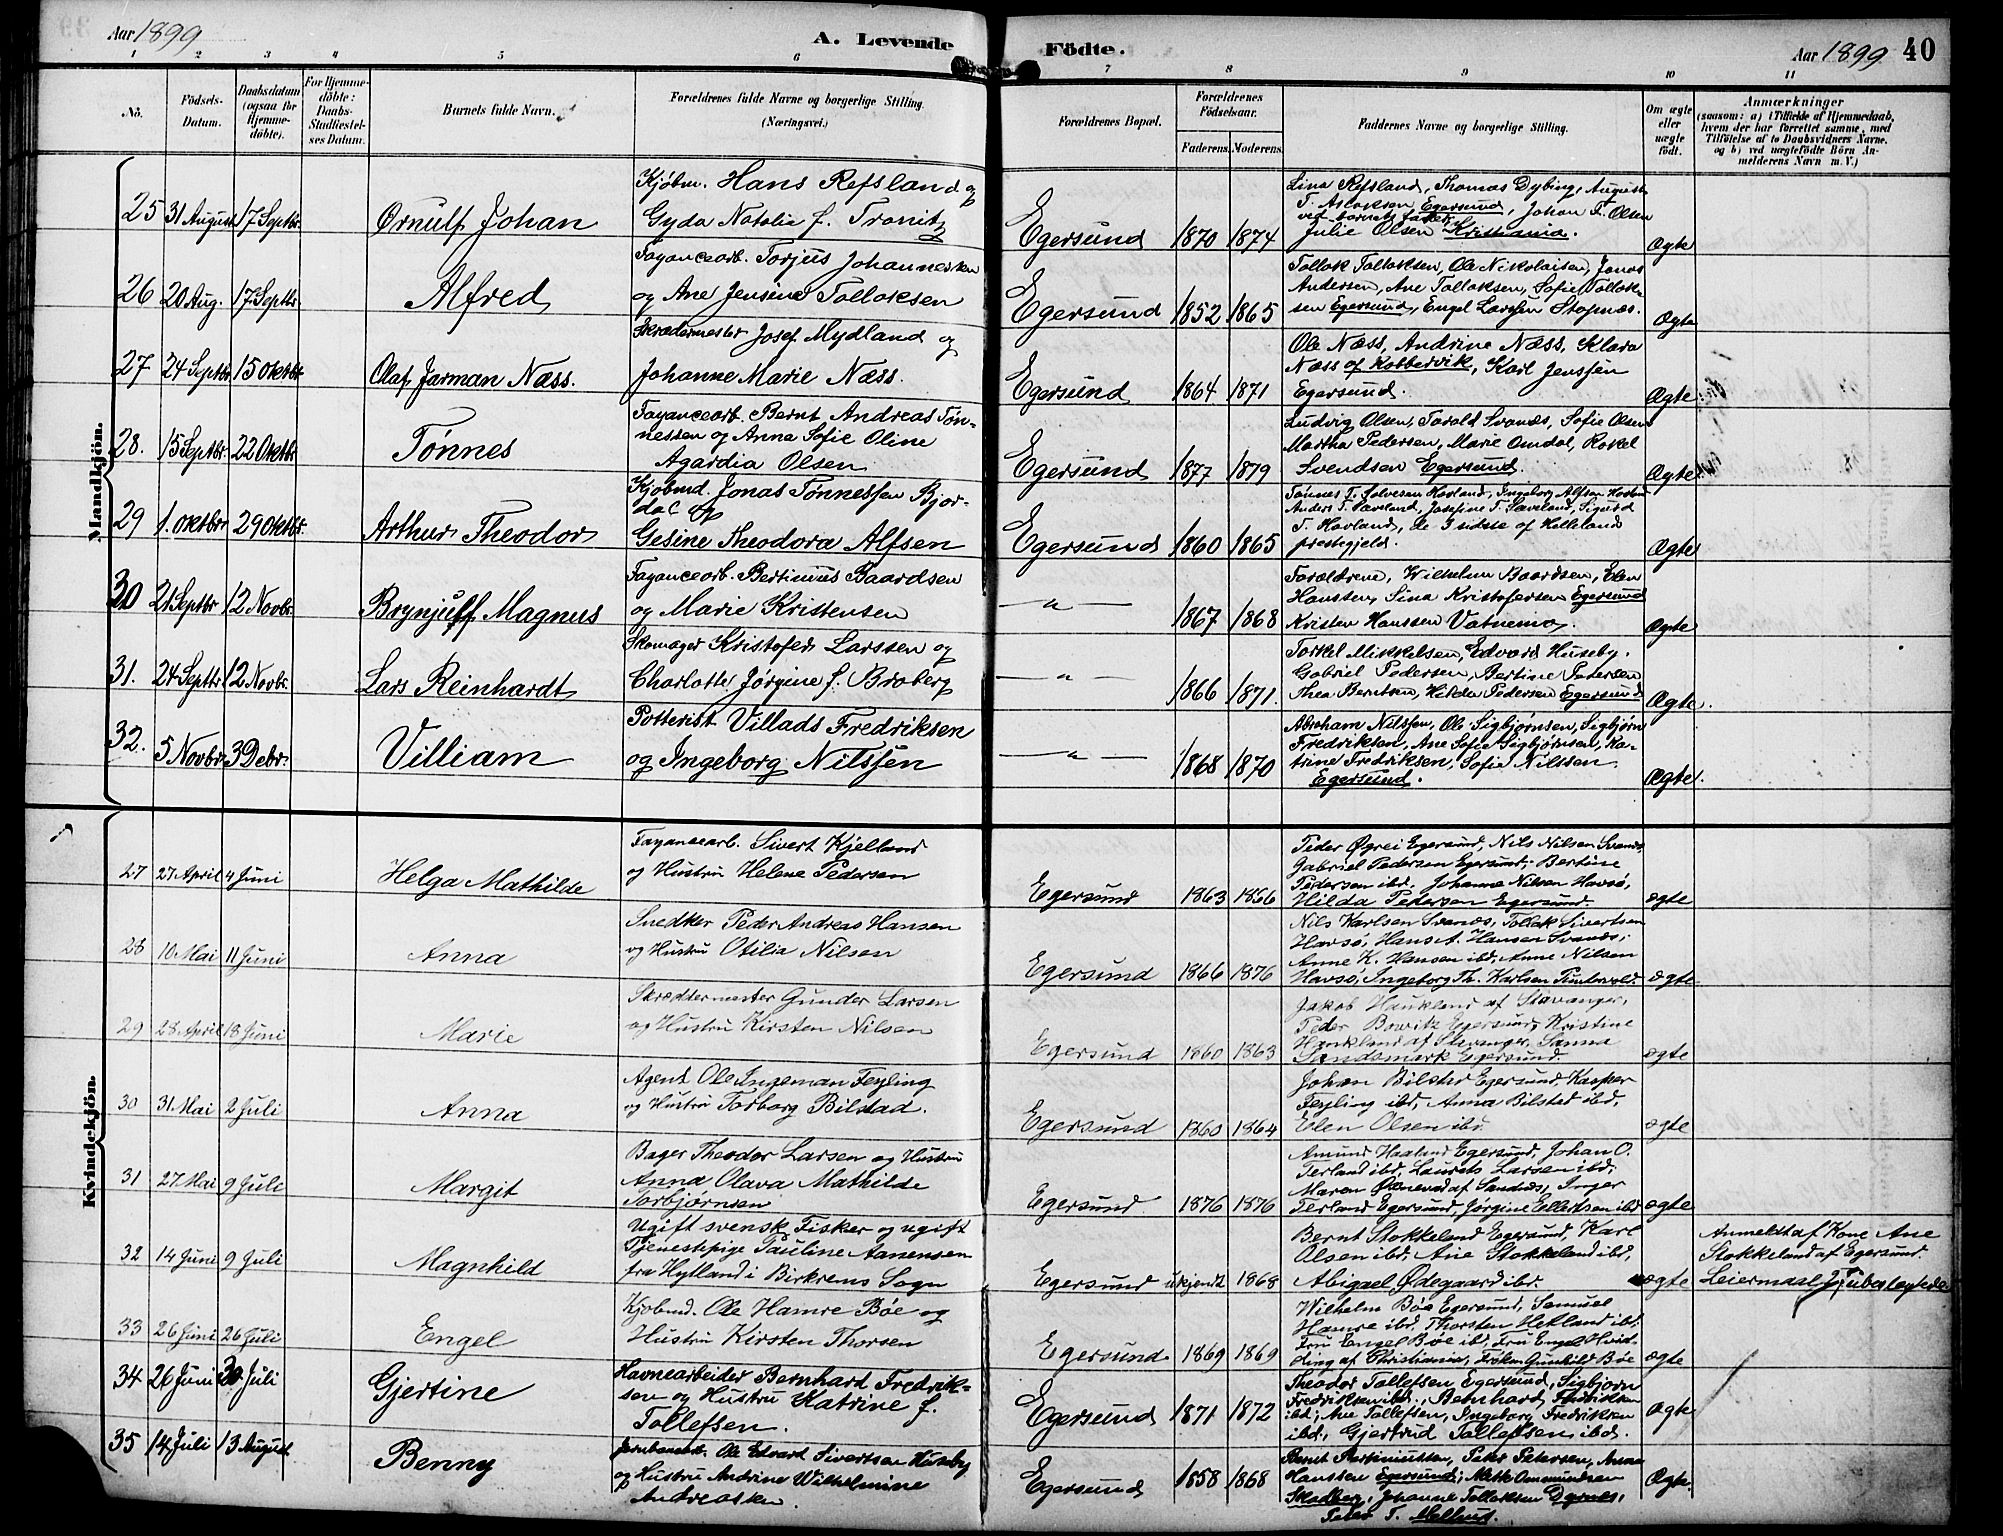 Aar 1899
A. Levende Födte.
Aar 1899 40
1 2 3 4 5 6 7 8 9 10 11
No.
Födsels-Datum.
Daabsdatum (ogsaa for Hjemmedöbte).
For Hjemmedöbte: Daabs-Stadfæstelses Datum.
Barnets fulde Navn.
Forældrenes fulde Navne og borgerlige Stilling. (Næringsvei.)
Forældrenes Bopæl.
Forældrenes Födselsaar.
Faderens. Moderens.
Faddernes Navne og borgerlige Stilling.
Om ægte eller uægte födt.
Anmærkninger
(saasom: a) i Tilfælde af Hjemmedaab, hvem der har forrettet samme, med Tilföielse af to Daabsvidners Navne. og b) ved uægtefödte Börn Anmelderens Navn m. V.)
Mandkjön.
25 31 August 17 Septbr. Ørnulf Johan
Kjøbm. Hans Refsland og
Gyda Natalia f. Tranitz
Egersund 1870 1874
Lina Refsland, Thomas Dybing, August
T. Aslaksen, Egersund, Johan F. Olsen
ved barnets fader
Julie Olsen Kristiania.
Ægte
26 20 Aug. 17 Septbr Alfred
Fayancearb. Torjus Johannessen
og Ane Jensine Tollaksen
Egersund 1852 1865
Tollak Tollaksen, Ole Nikolaisen, Jonas
Andersen, Ane Tollaksen, Sofie Tollak-
sen Egersund, Engel Larssen Stapnæs.
Ægte
27 24 Septbr. 15 Oktbr Olaf Jarman Næss.
Skrædermester Josef Mydland og
Johanne Marie Næss.
Egersund 1864 1871
Ole Næss, Andrine Næss, Klara
Næss af Kobbervik, Karl Jenssen
Egersund.
Ægte
28. 15 Septbr. 22 Oktbr Tønnes
Fayancearb. Bernt Andreas Tøn-
nessen og Anna Sofie Oline
Agardia Olsen
Egersund 1877 1879
Ludvig Olsen, Tarald Svanæs, Sofie Olsen
Martha Pedersen, Marie Omdal, Rakel
Svendsen Egersund.
Ægte
29 1. Oktbr 29 Oktbr. Arthur Theodor
Kjøbmd. Jonas Tønnessen Bjor-
dal og
Gesine Theodora Alfsen
Egersund 1860 1865
Tønnes T. Salvesen Havland, Ingeborg Alfsen
Anders T. Sæveland, Josefine T. Sæveland, Sigurd
T. Havland, de 3 sidste af Helleland
prestegjeld.
Ægte
30 21 Septbr 12 Novbr. Brynjulf Magnus
Fayancearb. Bertinius Baardsen
og Marie Kristensen
— " — 1867 1868
Forældrene, Wilhelm Baardsen, Elen
Hanssen, Sina Kristofersen Egersund
Kristen Hanssen Vatnemo.
Ægte
31. 24 Septbr 12 Novbr. Lars Reinhardt
Skomager Kristofer Larssen og
Charlotte Jørgine f. Broberg
— " — 1866 1871.
Torkel Mikkelsen, Edvard Huseby.
Gabriel Pedersen, Bertine Petersen
Thea Berntsen, Hilda Pedersen Egersund
Ægte.
32. 5 Novbr. 3 Debr. Villiam
Potterist Villads Fredriksen
og Ingeborg Nilssen
— " — 1868 1870
Abraham Nilssen, Ole Sigbjørnsen, Sigbjørn
Fredriksen, Ane Sofie Sigbjørnsen, Ka-
trine Fredriksen, Sofie Nilssen
Egersund.
Ægte.
Kvindekjön.
27 27 April 4 Juni Helga Mathilde
Fayancearb. Sivert Kjelland
og Hustru Helene Pedersen
Egersund 1863 1866
Peder Øgrei Egersund, Nils Nilsen Svanæs,
Gabriel Pedersen Egersund, Bertine
Pedersen ibd. Johanne Nilsen Havsø,
Hilda Pedersen Egersund.
ægte
28 10 Mai 11 Juni Anna
Snedker Peder Andreas Hansen
og Hustru Otilia Nilsen
Egersund 1866 1876
Nils Karlsen Svanæs, Tollak Sivertsen
Havsø, Hans A. Hansen Svanæs;
Anne K. Hansen ibd, Anne Nilsen
Havsø, Ingeborg Th. Karlsen
ægte
29 28 April 18 Juni Marie
Skreddermester Gunder Larsen
og Hustru Kirsten Nilsen
Egersund 1860 1863
Jakob Haukland af Stavanger,
Peder Bowitz Egersund, Kristine
Haukland af Stavanger, Sanna
Sandsmark Egersund.
ægte
30 31 Mai 2 Juli Anna
Agent Ole Ingeman Feyling
og Hustru Torborg Bilstad.
Egersund 1860 1864
Johan Bilstad Egersund, Kasper
Feyling ibd, Anna Bilstad ibd,
Elen Olsen ibd.
ægte
31 27 Mai 9 Juli Margit
Bager Theodor Larsen og Hustru
Anna Olava Mathilde
Torbjørnsen
Egersund 1876 1876
Amund Haaland Egersund, Johan O.
Terland ibd, Laurits Larsen ibd,
Maren af Sandnæs, Inger
Terland Egersund, Jorgine Ellertsen ibd
ægte
32 14 Juni 9 Juli Magnhild
Ugift svensk Fisker og ugift
Tjenestepige Pauline Aanensen
fra Hylland i Birkrems Sogn
Egersund ukjendt 1868
Bernt Stokkeland Egersund, Karl
Olsen ibd, Ane Stokkeland ibd,
Abigael Ødegaard ibd.
uægte
Anmeldt af Kone Ane
Stokkeland af Egersund.
Leiermaal
33 26 Juni 26 Juli Engel
Kjøbmd. Ole Hamre Bøe og
Hustru Kirsten Thorsen
Egersund 1869 1869
Wilhelm Bøe Egersund, Samuel
Hamre ibd, Thorsten Hetland ibd.
Fru Engel Bøe ibd, Fru Engel Hvid-
ding af Christiania, Frøken Gunhild Bøe
ægte
34 26 Juni 30 Juli Gjertine
Havnearbeider Bernhard Fredrik-
sen og Hustru Katrine f.
Tollefsen.
Egersund 1871 1872
Theodor Tollefsen Egersund, Sigbjørn
Fredriksen ibd., Bernhard Fredriksen
ibd; Ane Tollefsen, Ingeborg Fredriksen
ibd., Gjertrud Tollefsen ibd.
ægte
35 14 Juli 13 August Benny
Ole Edvard Sivertsen Huseby
og Hustru Andrine Wilhelmine
Andreassen.
Egersund 1858 1868
Bernt Peter Petersen, Anna
Hanssen Egersund; Mette Ommundsen
Skadberg, Johanne Tollaksen
Peter T.
Ægte.